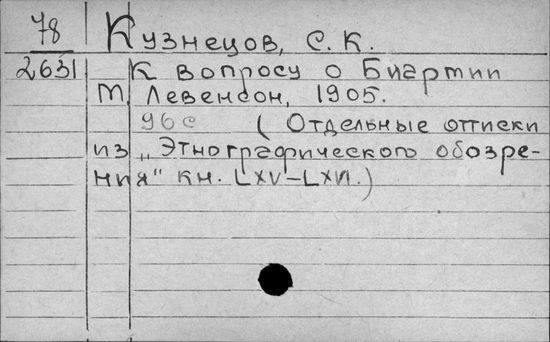 78 Кузнецов, С. К.
2631 К вопросу о Биармии
М, Левенсон, 1905.
96 с (Отдельные оттиски
из „Этнографического обозре-
ния" кн. LXV–LXVI.)